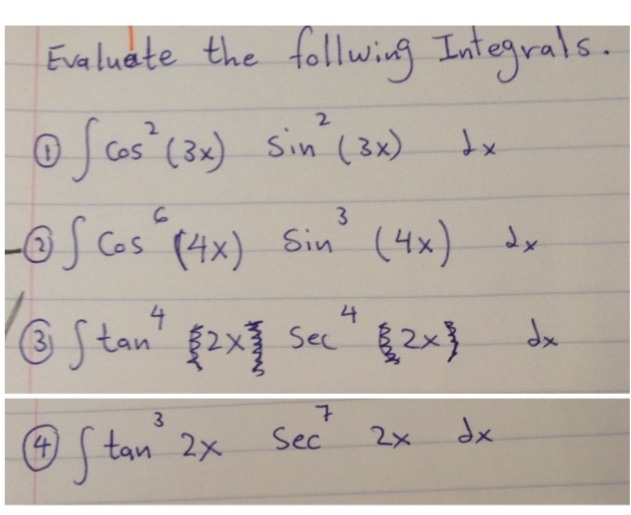 Evaluate the follwing Integrals.
① ∫ Cos² (3x) Sin² (3x) dx
② ∫ Cos⁶ (4x) Sin³ (4x) dx
③ ∫ tan⁴ {2x} Sec⁴ {2x} dx
④ ∫ tan³ 2x Sec⁷ 2x dx